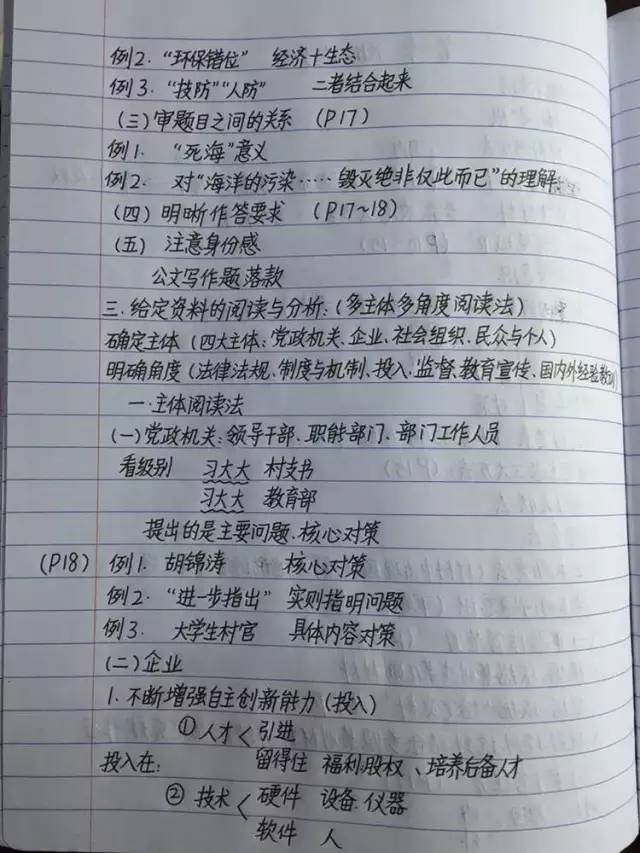 例2. “环保错位” 经济十生态
例3. “技防”“人防” 二者结合起来
(三)审题目之间的关系 (P17)
例1. “死海”意义
例2. 对“海洋的污染……毁灭绝非仅此而已”的理解
(四)明晰作答要求 (P17~18)
(五) 注意身份感
公文写作题落款
三.给定资料的阅读与分析:(多主体多角度阅读法)
确定主体(四大主体:党政机关、企业、社会组织、民众与个人)
明确角度(法律法规、制度与机制、投入、监督、教育宣传、国内外经验教训)
一.主体阅读法
(一)党政机关:领导干部、职能部门、部门工作人员
看级别 习大大 村支书
习大大 教育部
提出的是主要问题、核心对策
(P18) 例1. 胡锦涛 核心对策
例2. “进一步指出” 实则指明问题
例3. 大学生村官 具体内容对策
(二)企业
1.不断增强自主创新能力(投入)
①人才<引进
投入在: 留得住 福利、股权、培养后备人才
②技术<硬件 设备.仪器
软件 人